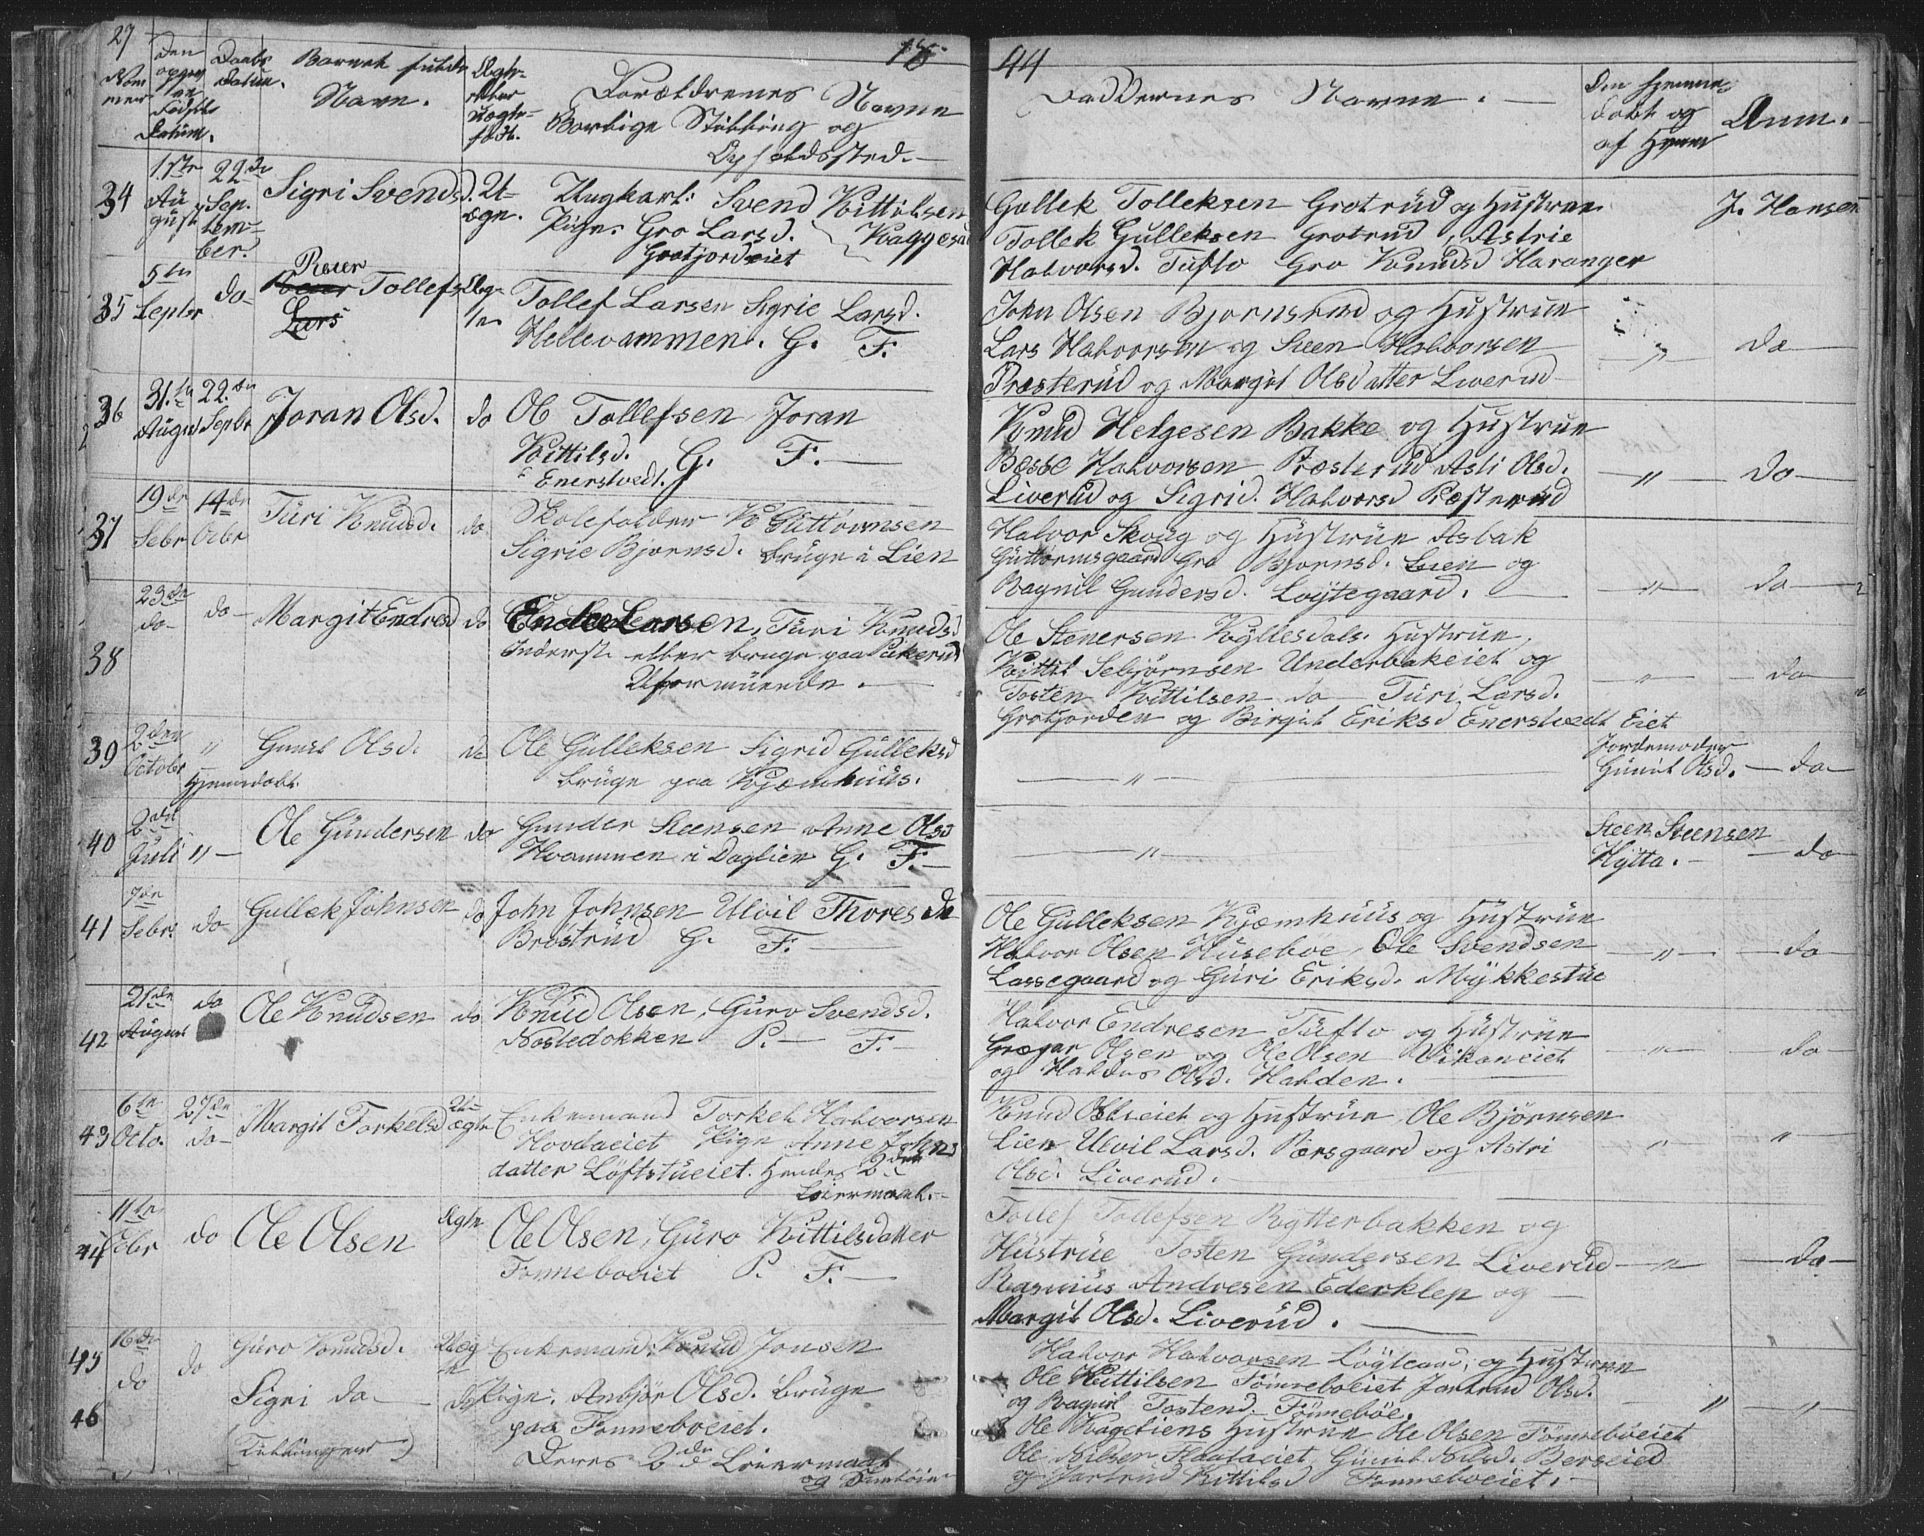 27
18
44
Nom mer
Den opgivne Fødsels Datum.
Daabs Datum.
Barnets fulde Navn.
Ægte eller Uægte født.
Forældrenes Navne Borlige Stilling og Opholdssted.
Faddernes Navne.
Den Hjemme døbt og af Hvem
Anm.
34
17de August
22de September
Sigri Svendsd.
Uægte.
Ungkarl: Svend Kittilsen Kaggesæt
Pige. Gro Larsd. Grotjordeiet
Gullek Tolleksen Grotrud og Hustrue
Tollek Gulleksen Grotrud, Astrie
Halvorsd. Tufto Gro Knudsd Haranger
J. Hansen
35
5te Septbr
do
Reier Tollefs.
Lars
Ægte
Tollef Larsen Sigrie Larsd.
Hellevammen. G. F.
John Olsen Bjørnsrud og Hustrue
Lars Halvorsen og Steen Halvorsen
Præsterud og Margit Olsdatter Liverud
"
do
36
31te August
22de Septbr
Joran Olsd.
do
Ole Tollefsen Joran
Kittilsd. G. F.
Enerstvedt.
Knud Helgesen Bakke og Hustrue
Besse Halvorsen Præsterud Asli Olsd.
Liverud og Sigrid Halvorsd Præsterud
"
do
37
19de Sebr
14de Ocbr
Turi Knudsd.
do
Skoleholder K Guttormsen
Sigrie Bjørnsd. bruge i Lien
Halvor Skoug og Hustrue Aslak
Guttormsgaard Gro Bjørnsd. Lien og
Ragnil Gundersd. Løytegaard.
"
do
38
23de do
do
Margit Endresd
do
Endre Larsen, Turi Knudsd
Inderst eller bruge paa Pukerud
Uformüende.
Ole Stenersen Kyllesdals Hustrue,
Kittil Sebjørnsen Underbakeiet og
Tosten Kittilsen do Turi Larsd.
Grotjorden og Birgit Eriksd Enerstvedt Eiet
"
do
39
2den Octobr
"
Hjemdøbt
Gunil Olsd.
do
Ole Gulleksen Sigrid Gulleksd
bruge paa Kjæmhuus.
"
Jordemoder Gunil Olsd.
do
40
Juli
"
Ole Gundersen
do
Gunder Steensen Anne Olsd
Hvammen i Daglien G. F.
"
Steen Steensen Hytta.
do
41
7de Sebr.
do
Gullek Johnsen
do
John Johnsen Ulvil Thoresd
Brøstrud G. F.
Ole Gulleksen Kjæmhuus og Hustrue
Halvor Olsen Huseboe, Ole Svendsen
Lassegaard og Guri Eriksd. Mykkestue
"
do
42
21de August
do
Ole Knudsen
do
Knud Olsen, Guro Svendsd.
Nostedokken P. F.
Halvor Endresen Tufto og Hustrue
Græger Olsen og Ole Olsen Vikaneiet
og Halduis Olsd. Halden.
"
do
43
6te Octo.
27de do
Margit Torkelsd
Uægte
Enkemand Torkel Halvorsen
Hovdaeiet Pige Anne Johns
datter Løftstueiet. Hendes 2den
Leiermaal.
Knud Oslieiet og Hustrue, Ole Bjørnsen
Lien Ulvil Larsd. Pærsgaard og Astri
Olsd. Liverud.
"
"
44
11te Ocbr
do
Ole Olsen
Ægte
Ole Olsen, Guro Kittilsdatter
Tønneboeiet P. F.
Tollef Tollefsen Rytterbakken og
Hustrue Tosten Gundersen Liverud
Rasmus Andresen Ederklep og
Margit Olsd. Liverud.
"
do
45
16de do
do
Guro Knudsd.
Uægte
Enkemand: Knud Jonsen
46
Sigri do
do
Pige: Anbjør Olsd. bruge
paa Tønneboeiet.
(Tvillinger)
Deres 2de Leiermaal
og
Halvor Halvorsen Løytegaard, og Hustrue
Ole Kittilsen Tønneboeiet Jartrud Olsd.
og Ragnil Tostend. Tønneboe.
Ole Kagaliens Hustrue Ole Olsen Tønneboeiet
Ole Nilsen Flaataeiet, Gunil Nilsd. Berseied
og Jartrud Kittilsd Tønneboeiet.
"
"